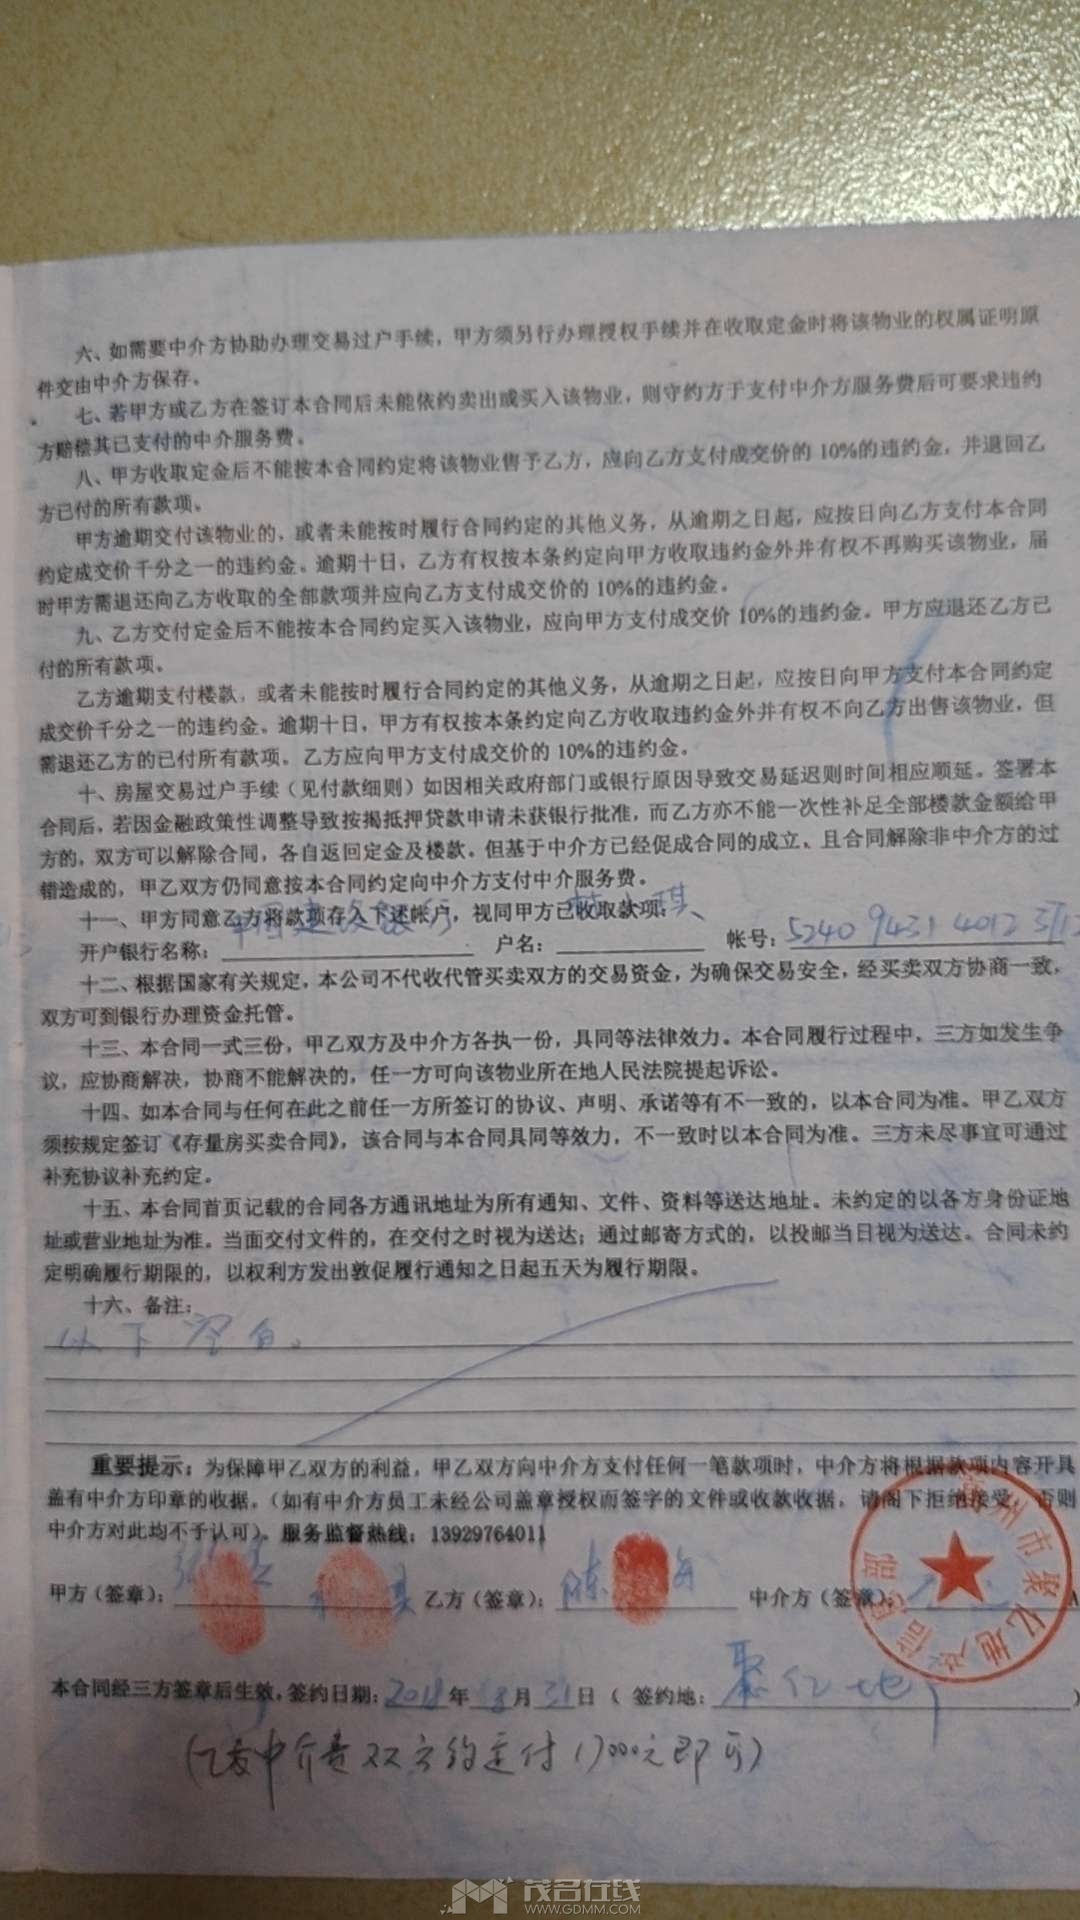 六、如需要中介方协助办理交易过户手续，甲方须另行办理授权手续并在收取定金时将该物业的权属证明原
件交由中介方保存。
七、若甲方或乙方在签订本合同后未能依约卖出或买入该物业，则守约方于支付中介方服务费后可要求违约
方赔偿其已支付的中介服务费。
八、甲方收取定金后不能按本合同约定将该物业售予乙方，应向乙方支付成交价的 10%的违约金，并退回乙
方已付的所有款项。
甲方逾期交付该物业的，或者未能按时履行合同约定的其他义务，从逾期之日起，应按日向乙方支付本合同
约定成交价千分之一的违约金。逾期十日，乙方有权按本条约定向甲方收取违约金外并有权不再购买该物业，届
时甲方需退还向乙方收取的全部款项并应向乙方支付成交价的 10%的违约金。
九、乙方交付定金后不能按本合同约定买入该物业，应向甲方支付成交价 10%的违约金。甲方应退还乙方已
付的所有款项。
乙方逾期支付楼款，或者未能按时履行合同约定的其他义务，从逾期之日起，应按日向甲方支付本合同约定
成交价千分之一的违约金。逾期十日，甲方有权按本条约定向乙方收取违约金外并有权不向乙方出售该物业，但
需退还乙方的已付所有款项。乙方应向甲方支付成交价的 10%的违约金。
十、房屋交易过户手续（见付款细则）如因相关政府部门或银行原因导致交易延迟则时间相应顺延。签署本
合同后，若因金融政策性调整导致按揭抵押贷款申请未获银行批准，而乙方亦不能一次性补足全部楼款金额给甲
方的，双方可以解除合同，各自返回定金及楼款。但基于中介方已经促成合同的成立、且合同解除非中介方的过
错造成的，甲乙双方仍同意按本合同约定向中介方支付中介服务费。
十一、甲方同意乙方将款项存入下述帐户，视同甲方已收取款项：
开户银行名称：中国建设银行 户名： 小琪 帐号：5240 9431 4012
十二、根据国家有关规定，本公司不代收代管买卖双方的交易资金，为确保交易安全，经买卖双方协商一致，
双方可到银行办理资金托管。
十三、本合同一式三份，甲乙双方及中介方各执一份，具同等法律效力。本合同履行过程中，三方如发生争
议，应协商解决，协商不能解决的，任一方可向该物业所在地人民法院提起诉讼。
十四、如本合同与任何在此之前任一方所签订的协议、声明、承诺等有不一致的，以本合同为准。甲乙双方
须按规定签订《存量房买卖合同》，该合同与本合同具同等效力，不一致时以本合同为准。三方未尽事宜可通过
补充协议补充约定。
十五、本合同首页记载的合同各方通讯地址为所有通知、文件、资料等送达地址。未约定的以各方身份证地
址或营业地址为准。当面交付文件的，在交付之时视为送达；通过邮寄方式的，以投邮当日视为送达。合同未约
定明确履行期限的，以权利方发出敦促履行通知之日起五天为履行期限。
十六、备注：
以下空白。
重要提示：为保障甲乙双方的利益，甲乙双方向中介方支付任何一笔款项时，中介方将根据款项内容开具
盖有中介方印章的收据。（如有中介方员工未经公司盖章授权而签字的文件或收款收据，请阁下拒绝接受，否则
中介方对此均不予认可）。服务监督热线：13929764011
甲方（签章）： 乙方（签章）：陈 中介方（签章）：
州市聚亿地产
本合同经三方签章后生效，签约日期：2018年8月31日（签约地：聚亿地产）
（乙方中介费双方约定付17000元即可）
茂名在线
WWW.GDMM.COM